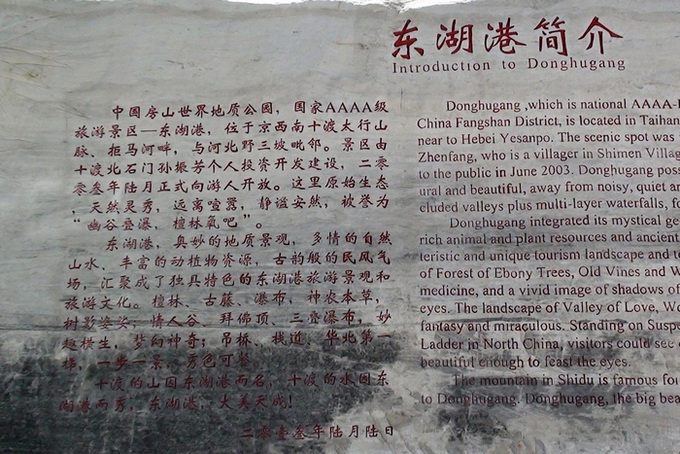 东湖港简介
Introduction to Donghugang
中国房山世界地质公园，国家AAAA级
旅游景区—东湖港，位于京西南十渡太行山
脉、拒马河畔，与河北野三坡毗邻。景区由
十渡北石门孙振芳个人投资开发建设，二零
零叁年陆月正式向游人开放。这里原始生态
，天然灵秀，远离喧嚣，静谧安然，被誉为
“幽谷叠瀑，檀林氧吧”。
东湖港，奥妙的地质景观，多情的自然
山水、丰富的动植物资源，古韵般的民风气
场，汇聚成了独具特色的东湖港旅游景观和
旅游文化。檀林、古藤、瀑布，神农本草，
树影姿头；情人谷、拜佛顶、三叠瀑布，妙
趣横生，梦幻神奇；吊桥、栈道、华北第一
梯，一步一景，秀色可餐。
十渡的山因东湖港而名，十渡的水因东
湖港而秀，东湖港，大美天成！
二零壹叁年陆月陆日
Donghugang ,which is national AAAA-
China Fangshan District, is located in Taihan
near to Hebei Yesanpo. The scenic spot was
Zhenfang, who is a villager in Shimen Villag
to the public in June 2003. Donghugang poss
ural and beautiful, away from noisy, quiet an
cluded valleys plus multi-layer waterfalls, fo
Donghugang integrated its mystical ge
rich animal and plant resources and ancient
teristic and unique tourism landscape and to
of Forest of Ebony Trees, Old Vines and W
medicine, and a vivid image of shadows of
eyes. The landscape of Valley of Love, Wo
fantasy and miraculous. Standing on Suspe
Ladder in North China, visitors could see
beautiful enough to feast the eyes.
The mountain in Shidu is famous fo
to Donghugang. Donghugang, the big bea